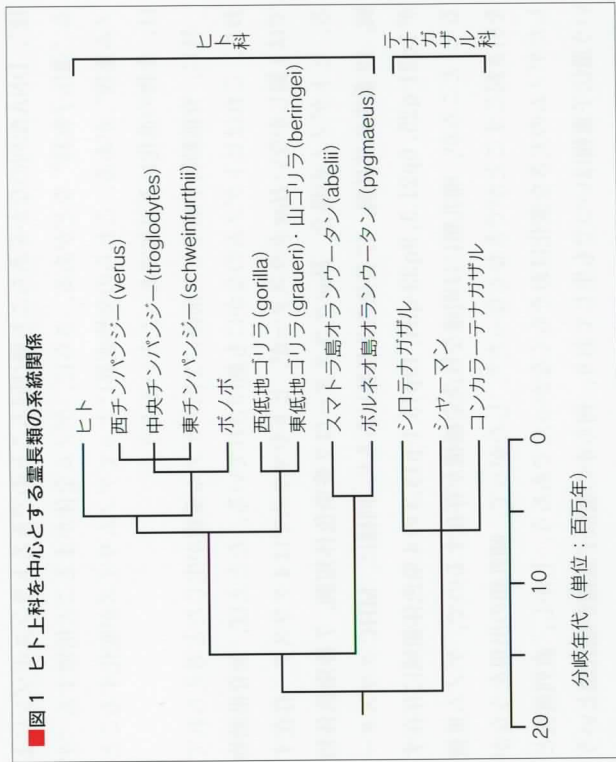 ■図1 ヒト上科を中心とする霊長類の系統関係
ヒト
西チンパンジー(verus)
中央チンパンジー(troglodytes)
東チンパンジー(schweinfurthii)
ボノボ
西低地ゴリラ(gorilla)
東低地ゴリラ(graueri)・山ゴリラ(beringei)
スマトラ島オランウータン(abelii)
ボルネオ島オランウータン(pygmaeus)
シロテナガザル
シャーマン
コンカラーテナガザル
ヒト科
テナガザル科
20 10 0
分岐年代(単位:百万年)